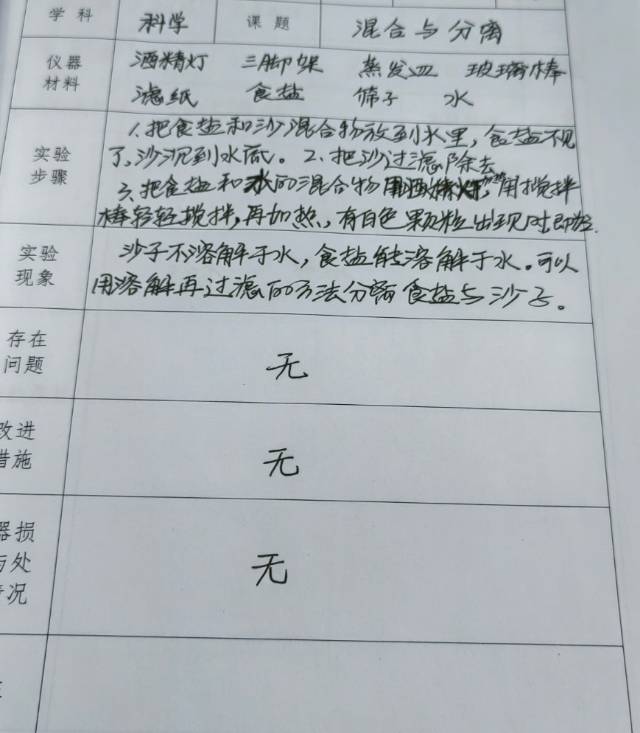 学科 科学 课题 混合与分离
仪器 酒精灯 三脚架 蒸发皿 玻璃棒
材料 滤纸 食盐 筛子 水
1.把食盐和沙混合物放到水里,食盐不见
实验 了,沙沉到水底。2.把沙过滤除去
步骤 3.把食盐和水的混合物用搅拌
棒轻轻搅拌,再加热,有白色颗粒出现时即
实验 沙子不溶解于水,食盐能溶解于水。可以
现象 用溶解再过滤的方法分离食盐与沙子。
存在
问题 无
改进
措施 无
器损
与处 无
情况